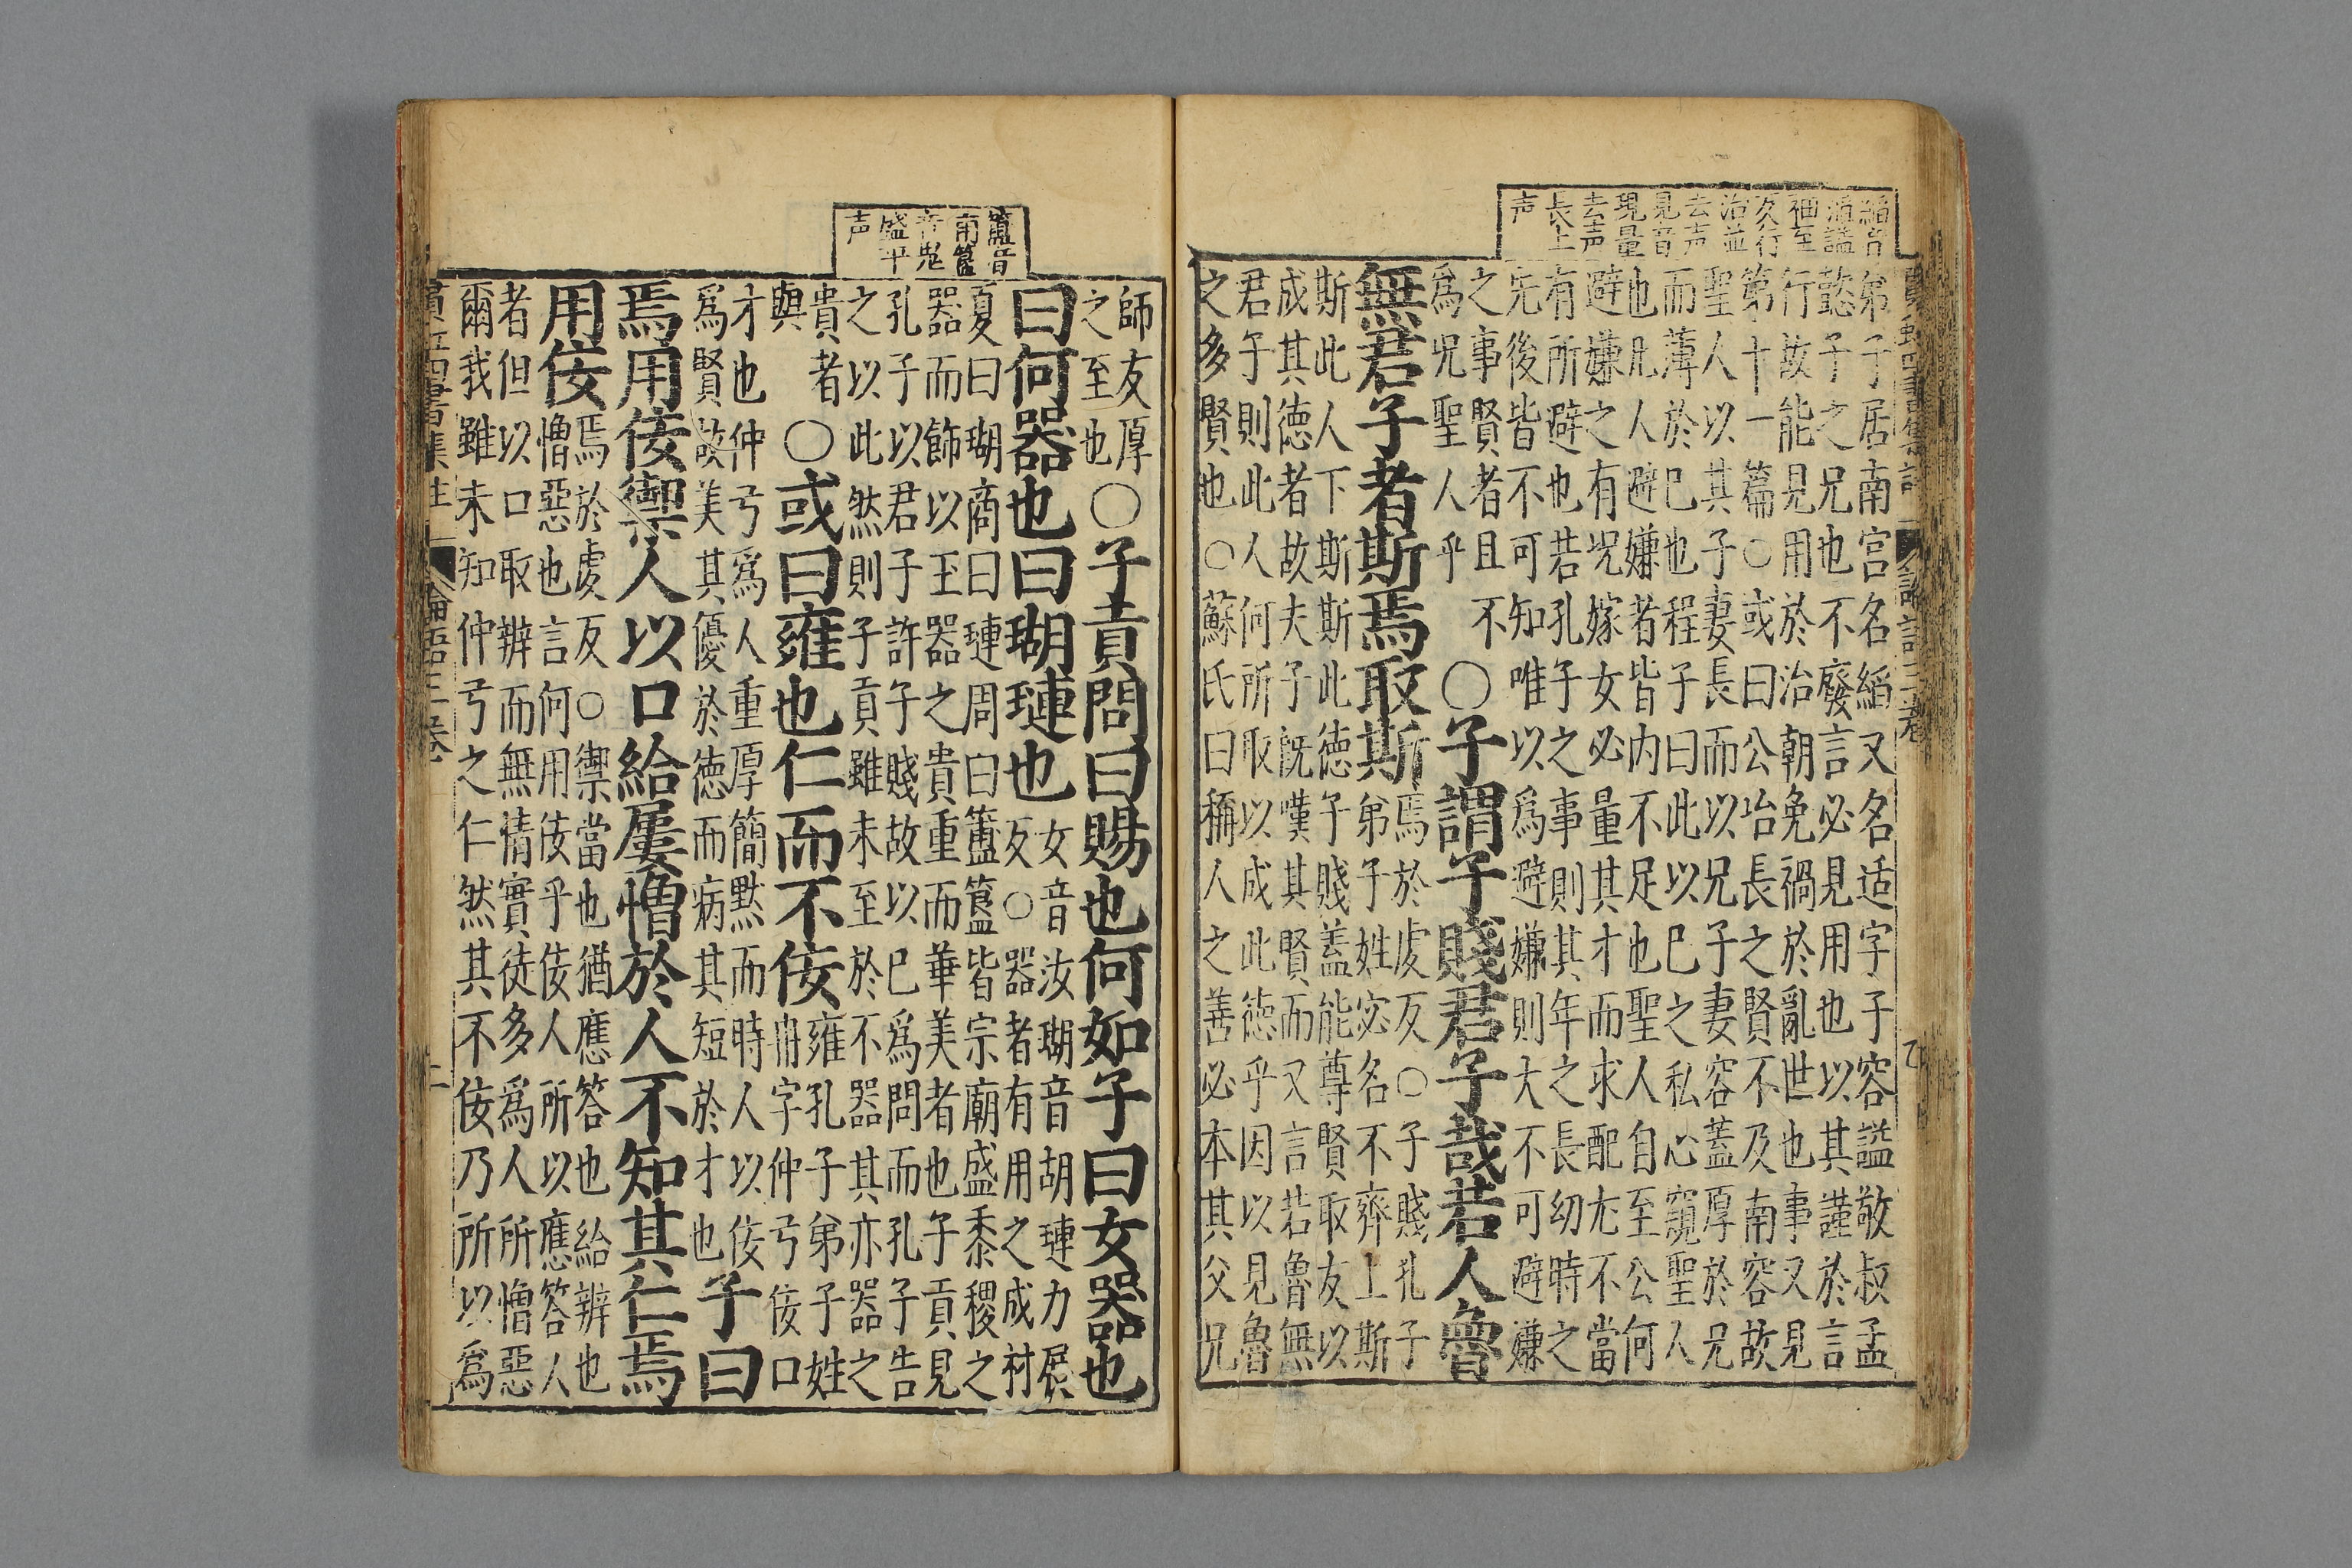 縚音
滔諡
神至
久行
治並
去声
見音
現量
去声
長上
声
弟子居南宮名縚又名适字子容諡敬叔孟
懿子之兄也不廢言必見用也以其謹於言
行故能見用於治朝免禍於亂世也事又見
第十一篇○或曰公冶長之賢不及南容故
聖人以其子妻長而以兄子妻容蓋厚於兄
而薄於已也程子曰此以已之私心窺聖人
也凡人避嫌者皆内不足也聖人自至公何
避嫌之有况嫁女必量其才而求配尤不當
有所避也若孔子之事則其年之長幼時之
先後皆不可知唯以爲避嫌則大不可避嫌
之事賢者且不
爲况聖人乎
○子謂子賤君子哉若人魯
無君子者斯焉取斯
焉於虔反○子賤孔子
弟子姓宓名不齊上斯
斯此人下斯斯此徳子賤蓋能尊賢取友以
成其徳者故夫子既嘆其賢而又言若魯無
君子則此人何所取以成此徳乎因以見魯
之多賢也○蘇氏曰稱人之善必本其父兄
簠音
甫簋
音鬼
盛平
声
師友厚
之至也
○子貢問曰賜也何如子曰女器也
曰何器也曰瑚璉也
女音汝瑚音胡璉力展
反○器者有用之成材
夏曰瑚商曰璉周曰簠簋皆宗廟盛黍稷之
器而飾以玉器之貴重而華美者也子貢見
孔子以君子許子賤故以已爲問而孔子告
之以此然則子貢雖未至於不器其亦器之
貴者
與
○或曰雍也仁而不佞
雍孔子弟子姓
冉字仲弓佞口
才也仲弓爲人重厚簡黙而時人以佞
爲賢故美其優於徳而病其短於才也
子曰
焉用佞禦人以口給屢憎於人不知其仁焉
用佞
焉於虔反○禦當也猶應答也給辨也
憎惡也言何用佞乎佞人所以應答人
者但以口取辨而無情實徒多爲人所憎惡
爾我雖未知仲弓之仁然其不佞乃所以爲